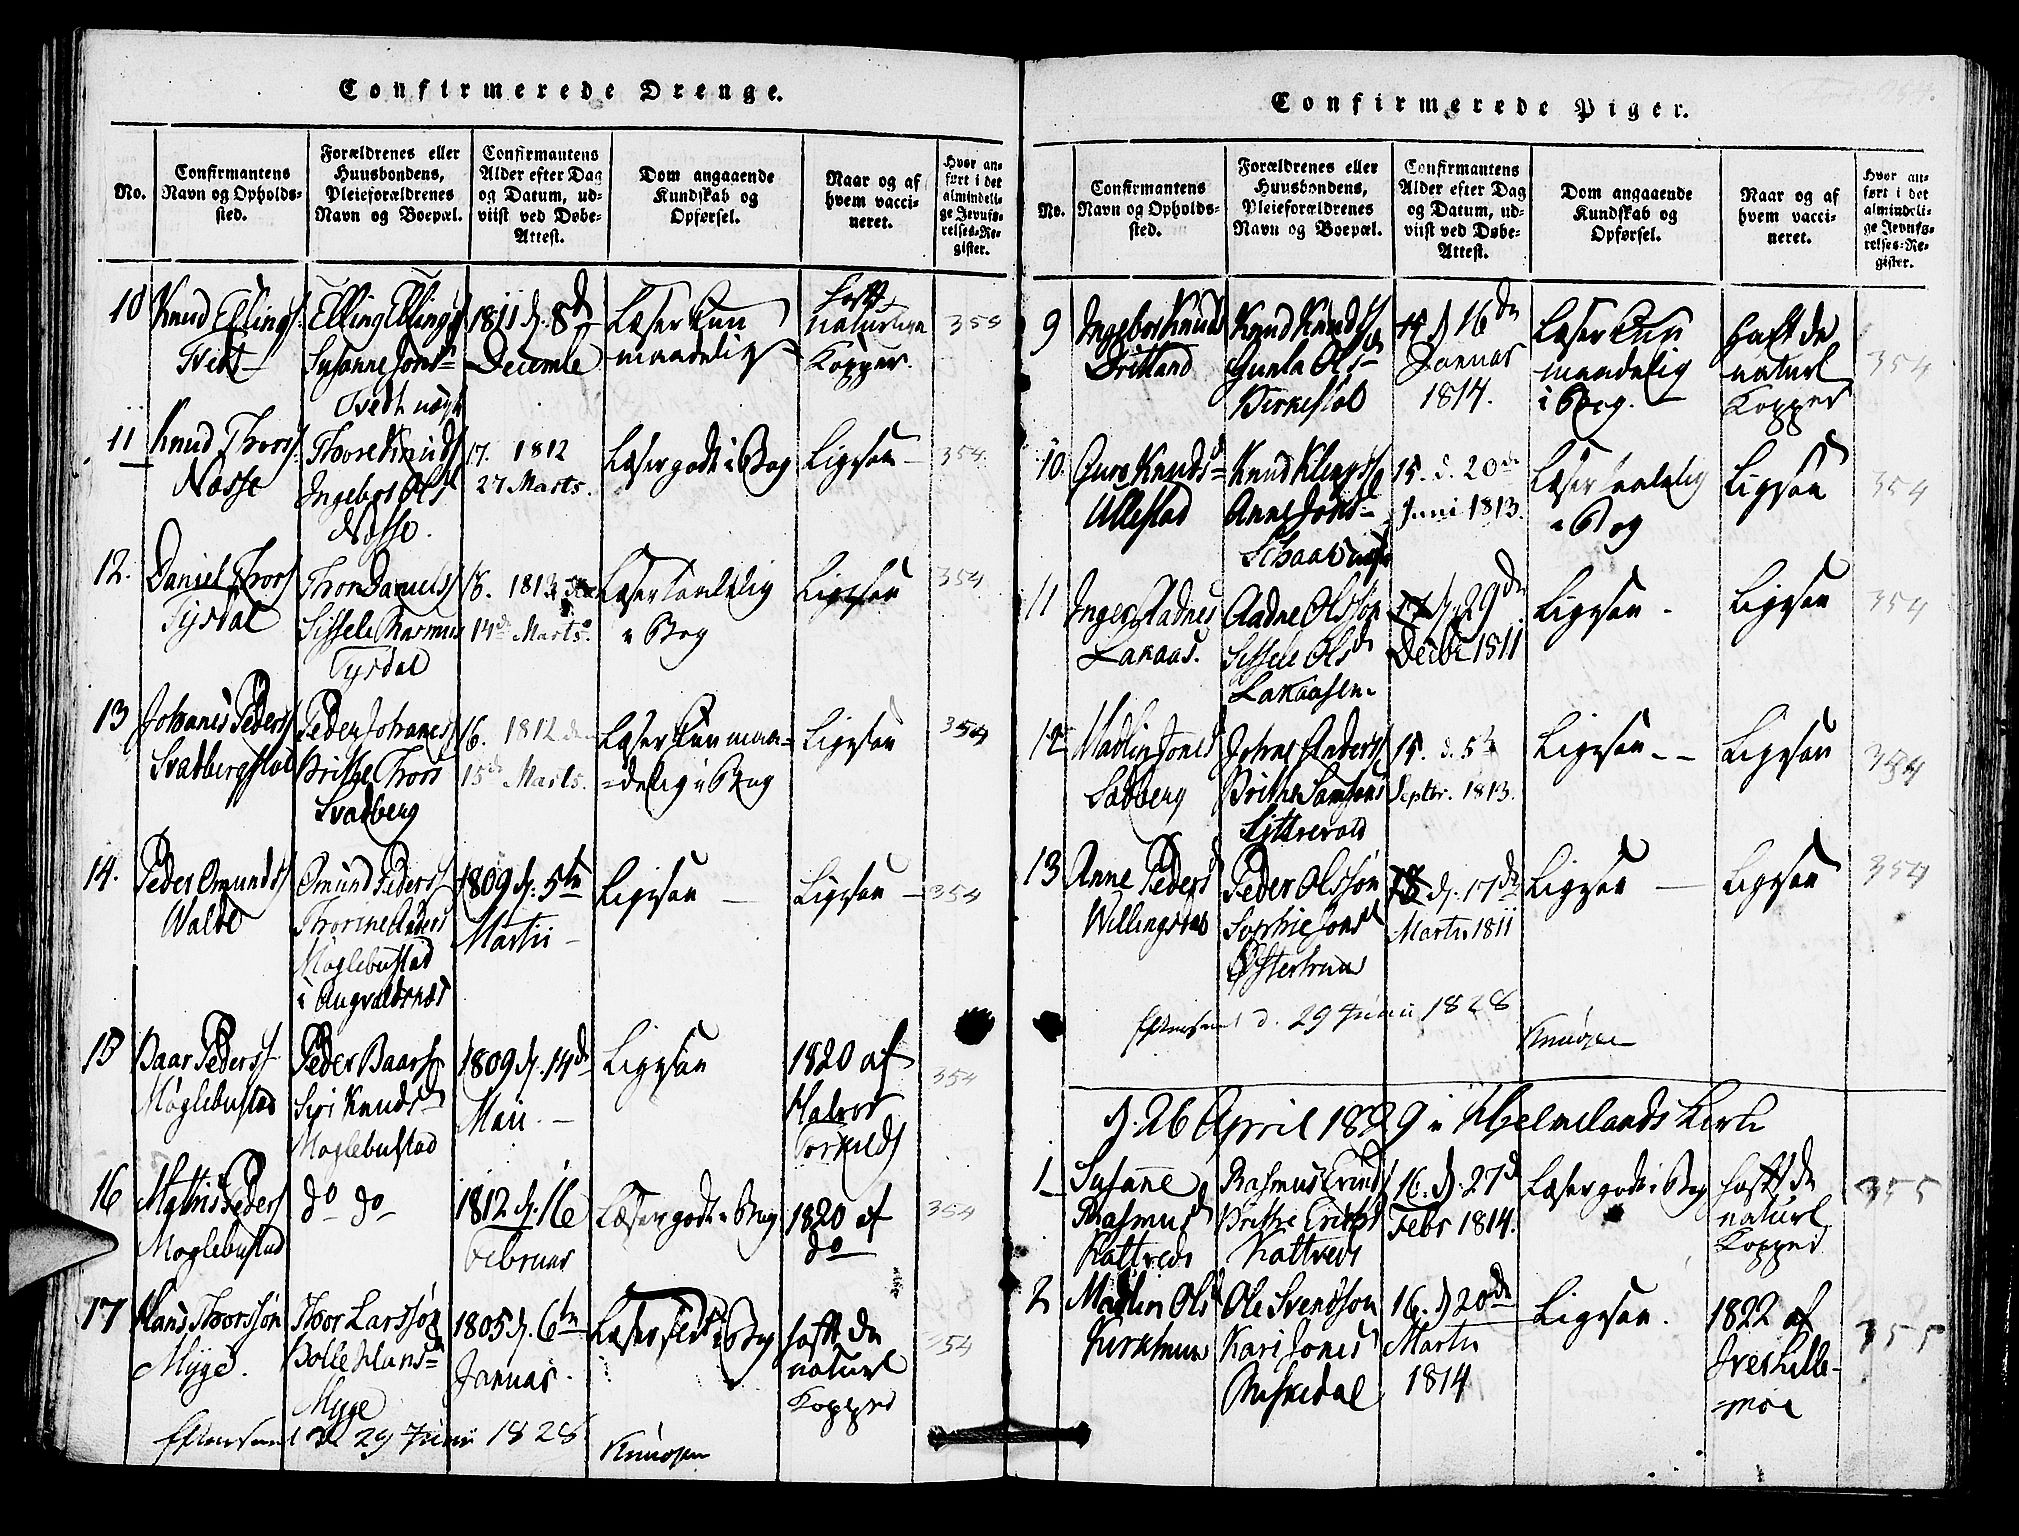 Confirmerede Drenge.
No.
Confirmantens Navn og Opholds-sted.
Forældrenes eller Huusbondens, Pleieforældrenes Navn og Boepæl.
Confirmantens Alder efter Dag og Datum, ud-viist ved Døbe-Attest.
Dom angaaende Kundskab og Opførsel.
Naar og af hvem vacci-neret.
Hvor an-ført i det almindeli-ge Jevnfø-relses-Re-gister.
10 Knud Ellings Tvedt
Elling Ellings Susanne Jons Tvedt
1811 d. 8de Decembr
Læser kun maadelig
haft naturlige Kopper.
355
11 Knud Thors Nosse
Thore Knuds Ingebor Ols Nosse.
17. 1812 27 Marts.
Læser godt i Bog
Ligesaa
354
12. Daniel Thors Tysdal
Thor Daniels Sissele Rasmus Tysdal
1813 14de Marts.
Læser taalelig i Bog
Ligesaa
354
13 Johanes Peders Svadbergstøl
Peder Johanes Brithe Thors Svadberg
16. 1812 den 15de Marts.
Læser kun maa=delig i Bog
Ligesaa
354
14. Peder Omunds Walde
Omund Peders Thorine Anders Møglebustad i Augvaldsnæs
1809 d. 5te Martii
Ligesaa
Ligesaa
354
15 Baar Peders Møglebustad
Peder Baars Siri Knuds Møglebustad
1809 d. 14de Maii.
Ligesaa
1820 af Halvor
354
16 Mathis Peders Møglebustad
do do
1812 d. 16 Februar
Læser godt i Bog
1820 af do
354
17 Hans Thorssøn Mÿge.
Thor Larssøn Bolle Hans Mÿge
1805 d. 6te Januar.
Læser slet i Bog
haft de naturl Kopper
354
d. 29 Junii 1828
Knudsen
Confirmerede Piger.
No.
Confirmantens Navn og Opholds-sted.
Forældrenes eller Huusbondens, Pleieforældrenes Navn og Boepæl.
Confirmantens Alder efter Dag og Datum, ud-viist ved Døbe-Attest.
Dom angaaende Kundskab og Opførsel.
Naar og af hvem vacci-neret.
Hvor an-ført i det almindeli-ge Jevnfø-relses-Re-gister.
9 Ingebor Knuds Britland
Knud Knuds Gunla Ols Birkestøl
d 16de Januar 1814.
Læser kun maadelig i Bog.
haft de naturl Kopper
354
10. Guro Knuds Ullestad
Knud Anne Jons
15. d. 20de Juni 1813.
Læser taalelig i Bog
Ligesaa
354
11 Inger Aadnes Lakaas.
Aadne Olssøn Sissele Ols Lakaasen
d. 29de Decbr 1811
Ligesaa
Ligesaa
354
12 Madlin Jones Sadberg
Johne Anders Brithe Samsons
15. d. 5te Septbr. 1813.
Ligesaa
Ligesaa
354
13 Anne Peders Willingstad
Peder Olssøn Sophie Jons Østerhuus
d. 17de Martii 1811
Ligesaa
Ligesaa
354
d. 29 Junii 1828
Knudsen
d. 26 April 1829 i Hjelmelands Kirke
1 Susanne Rasmus Kattreds
Rasmus Brithe Kattreds
16. d. 27de Febr 1814.
Læser godt i Bog
haft de naturl Kopper
355
2 Madlin Ols Kirkhuus
Ole Svendsson Kari Jones
16. d 20de Martii 1814
Ligesaa.
1822 af
355